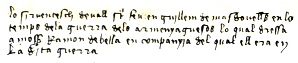 lo sirventesch devall scrit feu en guillem de masdovelles en lo
temps de la guerra de los armenyaguesos lo qual dressa
a mossen Ramon dabella en companyia del qual ell era en
la dita guerra